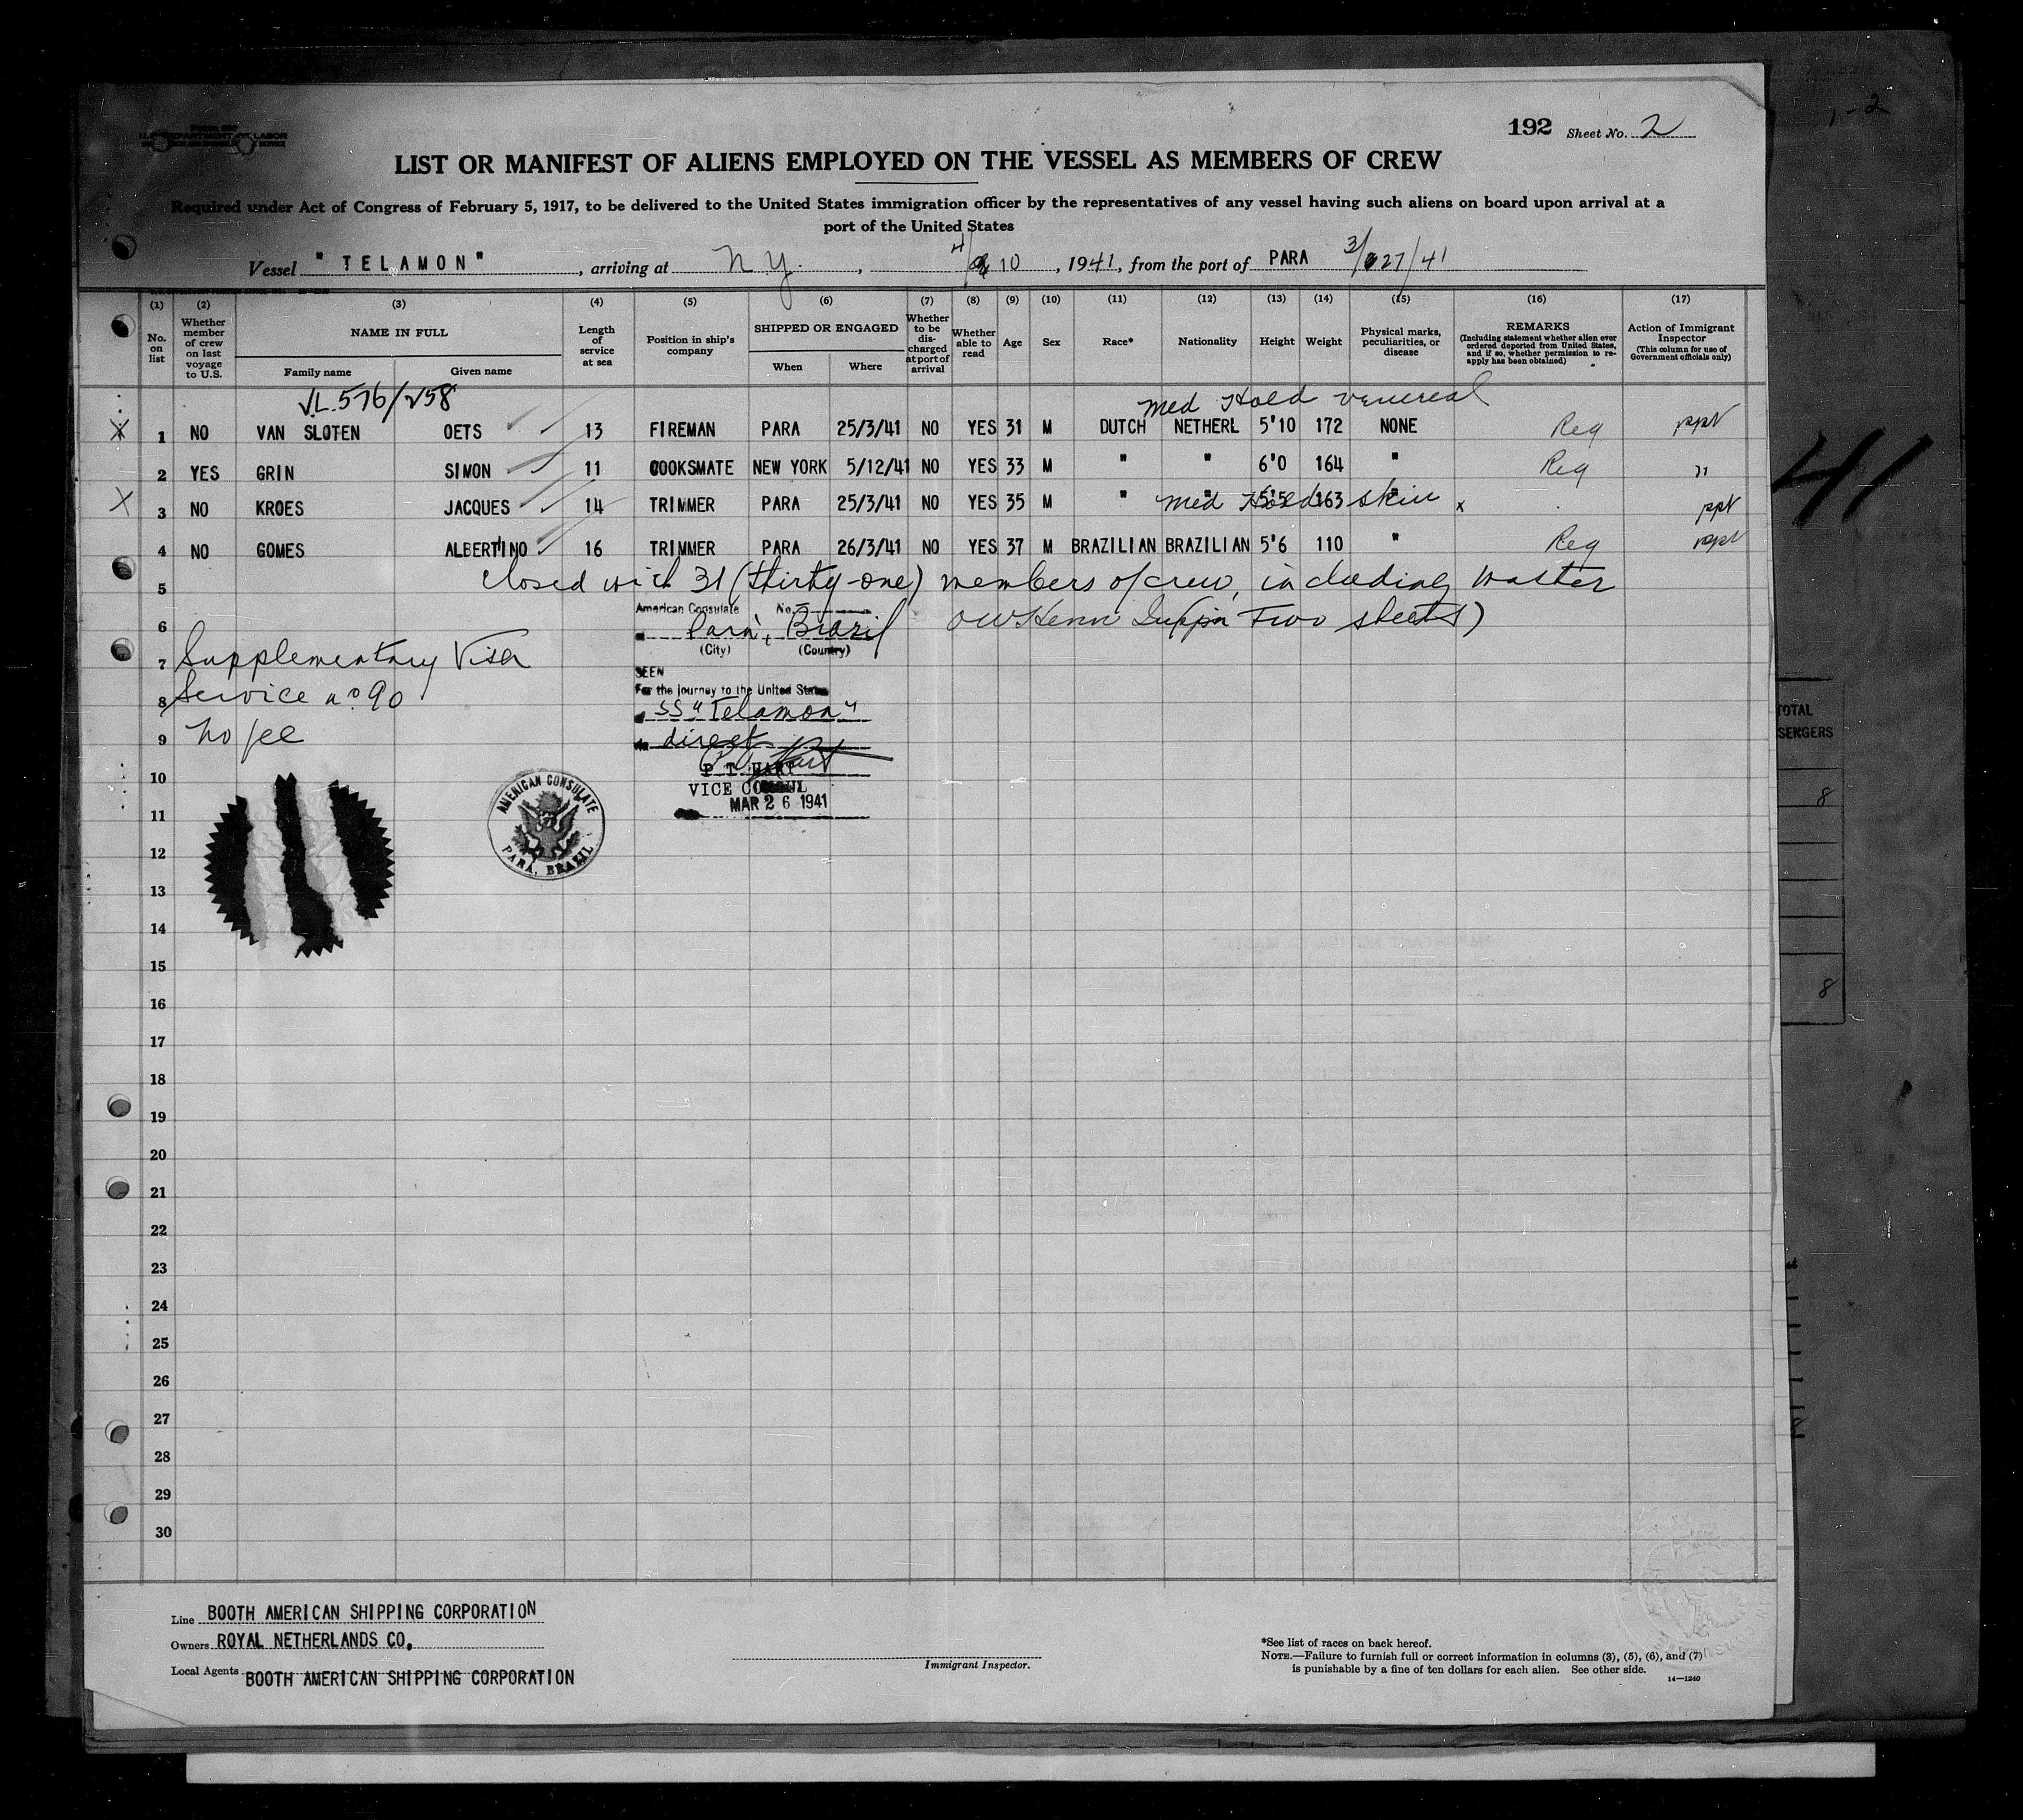 192 Sheet No. 2
LIST OR MANIFEST OF ALIENS EMPLOYED ON THE VESSEL AS MEMBERS OF CREW
Required under Act of Congress of February 5, 1917, to be delivered to the United States immigration officer by the representatives of any vessel having such aliens on board upon arrival at a
port of the United States
Vessel "TELAMON", arriving at N.Y., 4/10, 1941, from the port of PARA 3/27/41
(1) (2) (3) (4) (5) (6) (7) (8) (9) (10) (11) (12) (13) (14) (15) (16) (17)
No. on list
Whether member of crew on last voyage to U.S.
NAME IN FULL
Family name
Given name
Length of service at sea
Position in ship's company
SHIPPED OR ENGAGED
When
Where
Whether to be discharged at port of arrival
Whether able to read
Age
Sex
Race*
Nationality
Height
Weight
Physical marks, peculiarities, or disease
REMARKS
(Including statement whether alien ever ordered deported from United States, and if so, whether permission to reapply has been obtained)
Action of Immigrant Inspector
(This column for use of Government officials only)
Med Hold venereal
1 NO VAN SLOTEN OETS 13 FIREMAN PARA 25/3/41 NO YES 31 M DUTCH NETHERL 5'10 172 NONE Reg ppt
2 YES GRIN SIMON 11 COOKSMATE NEW YORK 5/12/41 NO YES 33 M " " 6'0 164 " Reg "
3 NO KROES JACQUES 14 TRIMMER PARA 25/3/41 NO YES 35 M " " 5'5 163 " x ppt
Med Hold skin
4 NO GOMES ALBERTINO 16 TRIMMER PARA 26/3/41 NO YES 37 M BRAZILIAN BRAZILIAN 5'6 110 " Reg ppt
5 Closed with 31 (thirty-one) members of crew, including master
6 in Two sheets)
American Consulate No.
Pará, Brazil
(City) (Country)
7 Supplementary Visa
SEEN
For the journey to the United States
8 Service no 90
SS "Telamon"
9 no fee
direct
P. T. HART
VICE CONSUL
MAR 26 1941
AMERICAN CONSULATE
PARÁ, BRAZIL
10
11
12
13
14
15
16
17
18
19
20
21
22
23
24
25
26
27
28
29
30
Line BOOTH AMERICAN SHIPPING CORPORATION
Owners ROYAL NETHERLANDS CO.
Local Agents BOOTH AMERICAN SHIPPING CORPORATION
Immigrant Inspector.
*See list of races on back hereof.
NOTE.—Failure to furnish full or correct information in columns (3), (5), (6), and (7)
is punishable by a fine of ten dollars for each alien. See other side.
14—1240
41
TOTAL
8
8